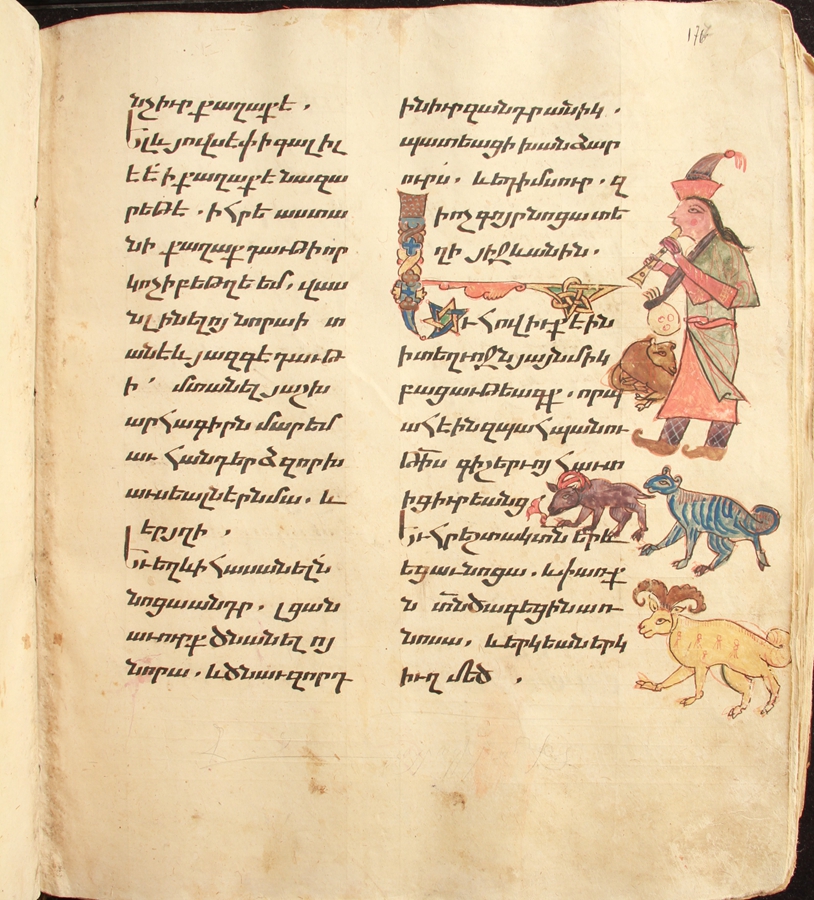 նչիւր քաղաքէ ․
Ել և յովսէփ ի գալիլ
էէ ի քաղաքէ նազա
րեթէ ․ ի հրէաստա
նի քաղաք դաւթի որ
կոչի բեթղեեմ, վաս
ն լինելոյ նորա ի տ
անէ և յազգէ դաւթ
ի ՛ մտանել յաշխ
արհագիրն մարեմ
աւ հանդերձ զոր խ
աւսեալն էր նմա ․ և
էր յղի ․
Եւ եղև ի հասանելն
նոցա անդր ․ լցան
աւուրք ծնանելոյ
նորա ․ և ծնաւ զորդ
ին իւր զանդրանիկ ․
պատեաց ի խանձար
ուրս ․ և եդ ի մսուր ․ զ
ի ոչ գոյր նոցա տե
ղի յիջևանին ․
Եւ հովիւք էին
ի տեղւոջն յայնմիկ
բացաւթեագք ․ որպ
ահէին զպահպանու
թիս գիշերոյ հաւտ
ից իւրեանց ․
Եւ հրեշտակ տն երև
եցաւ նոցա ․ և փառք
ն տն ծագեցին առ
նոսա ․ և երկեան երկ
իւղ մեծ ․